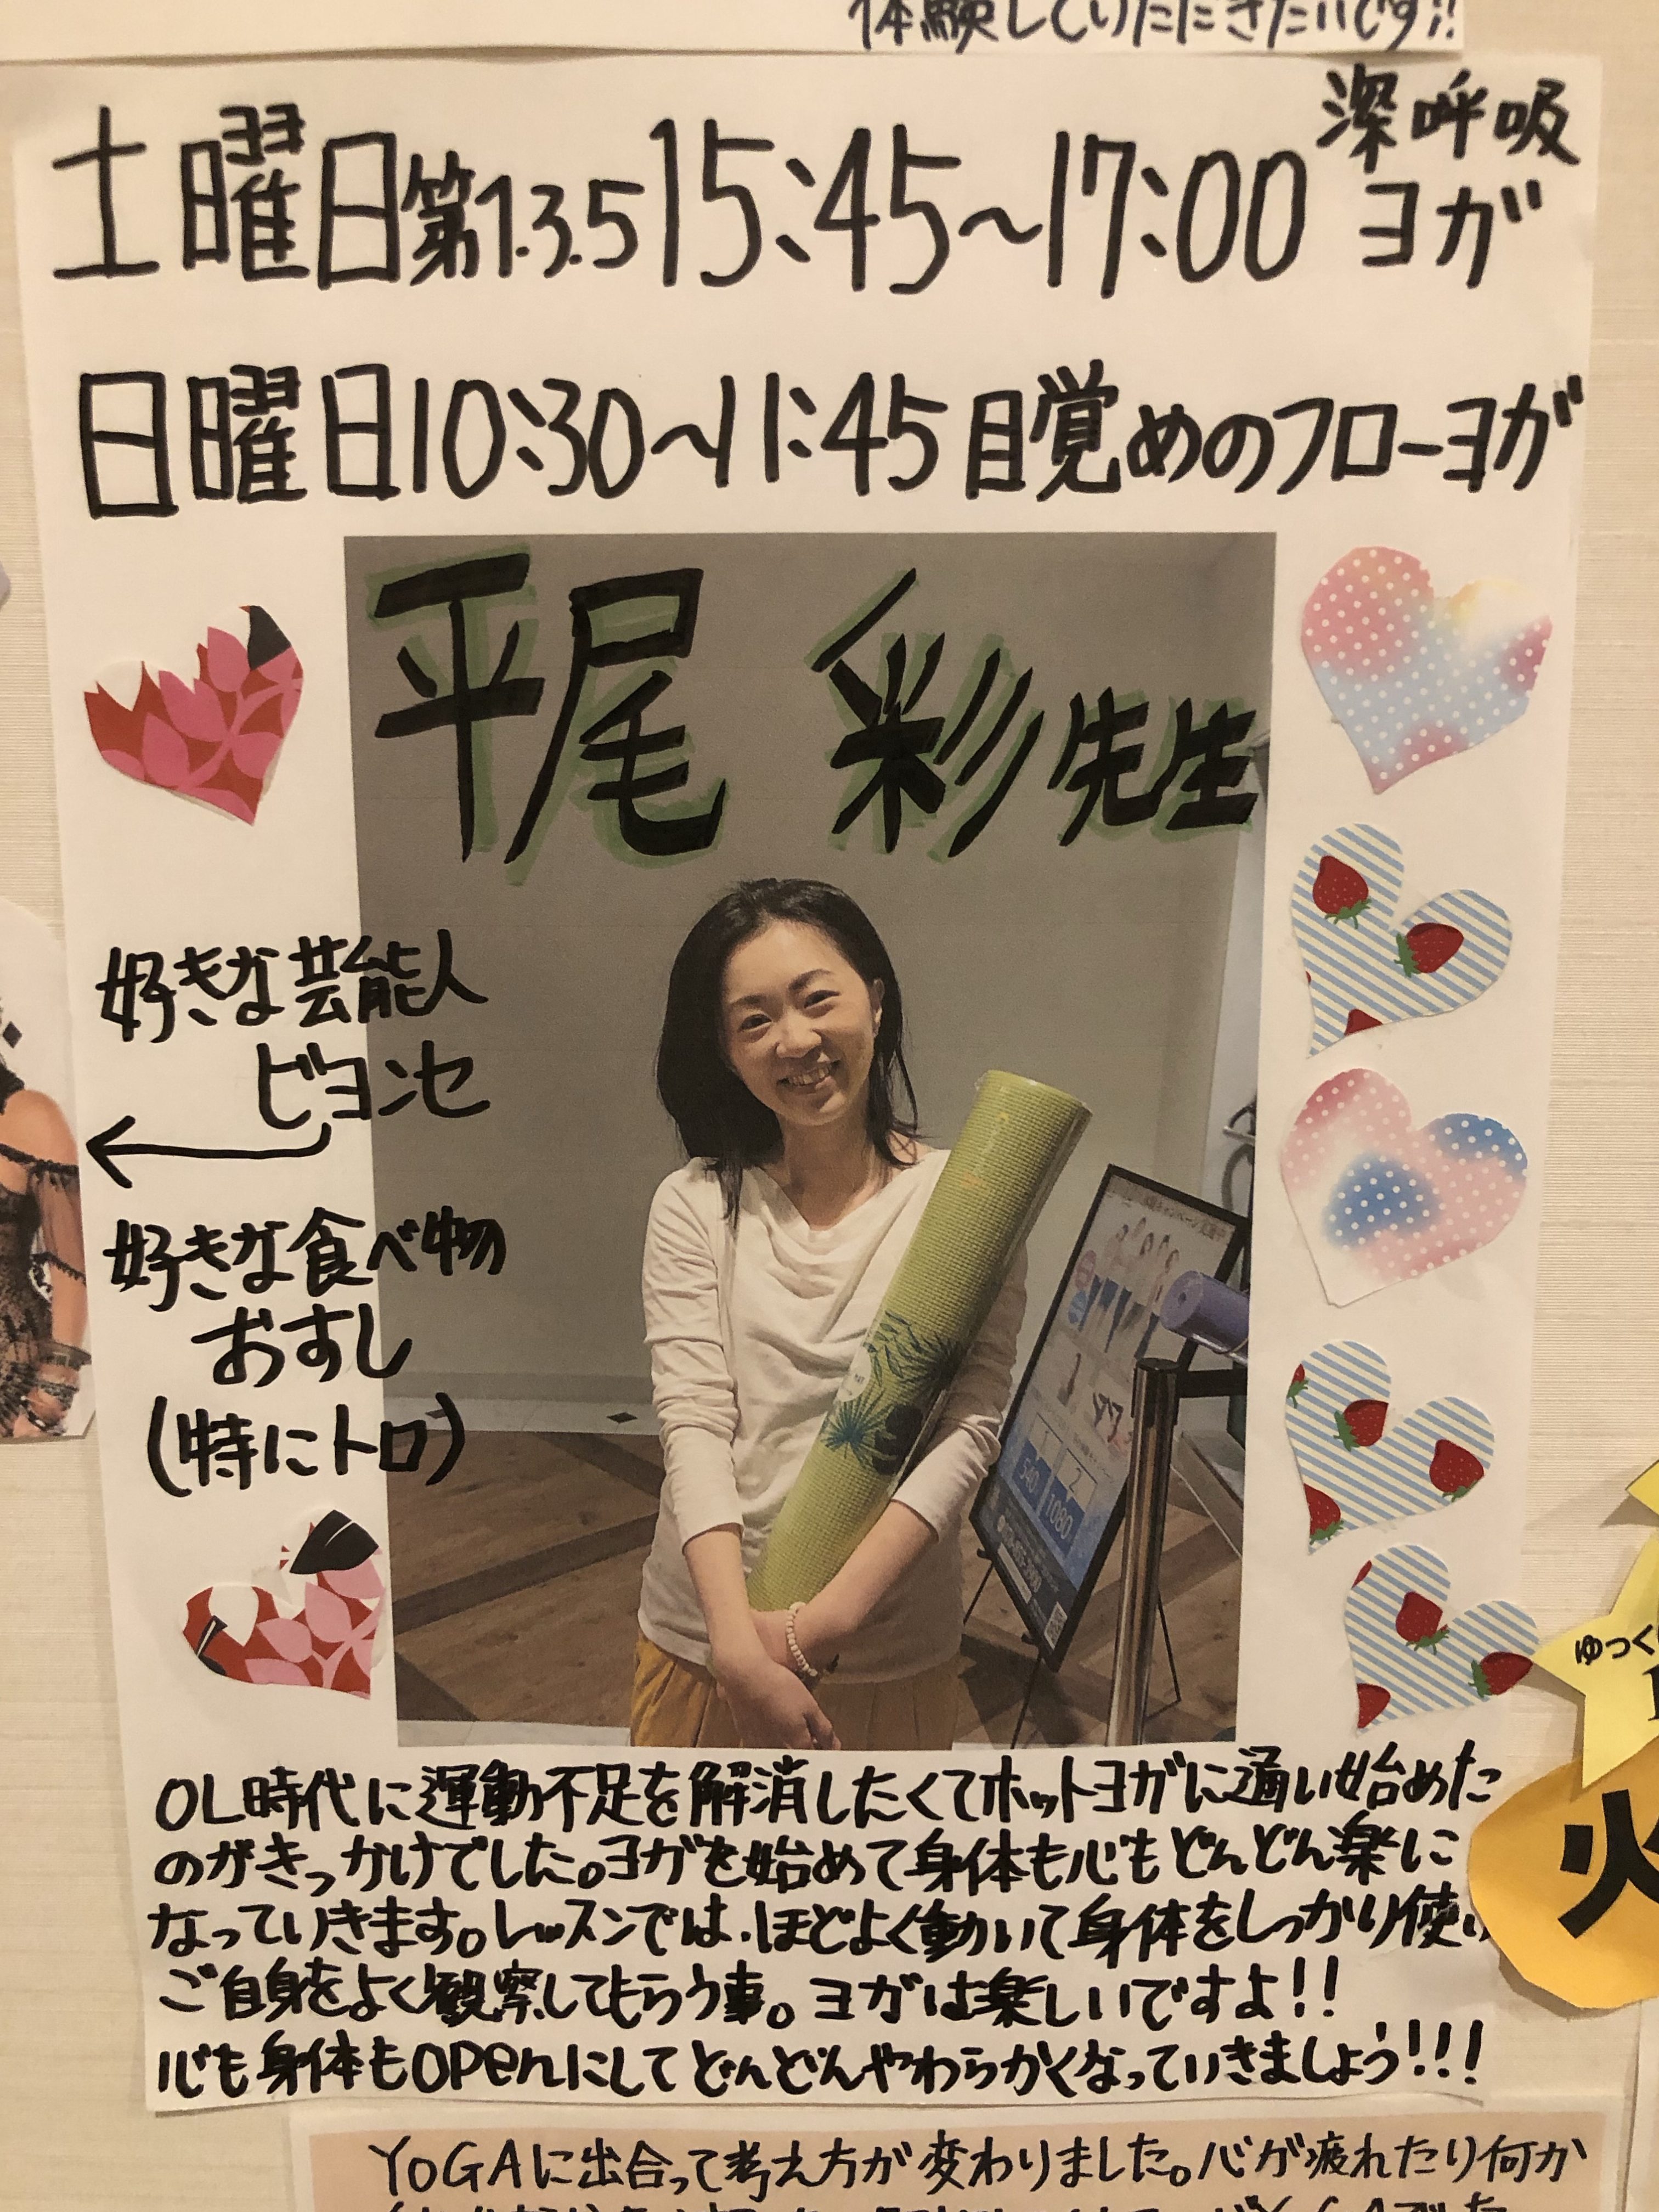 体験していただきたいです!!
土曜日第1.3.5 15:45～17:00 深呼吸ヨガ
日曜日10:30～11:45 目覚めのフローヨガ
平尾 彩先生
好きな芸能人
ビヨンセ
好きな食べ物
おすし
(特にトロ)
540
1080
OL時代に運動不足を解消したくてホットヨガに通い始めた
のがきっかけでした。ヨガを始めて身体も心もどんどん楽に
なっていきます。レッスンでは、ほどよく動いて身体をしっかり使い
ご自身をよく観察してもらう事。ヨガは楽しいですよ!!
心も身体もopenにしてどんどんやわらかくなっていきましょう!!!
ゆっく
火
YOGAに出合って考え方が変わりました。心が疲れたり何か